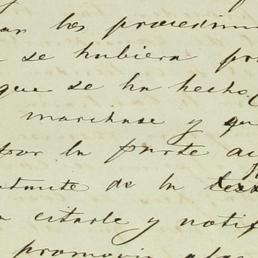 los procedim
se hubiera pr
que se ha hecho
marchase y qu
por la parte a
de la
citarle y notif
promovir